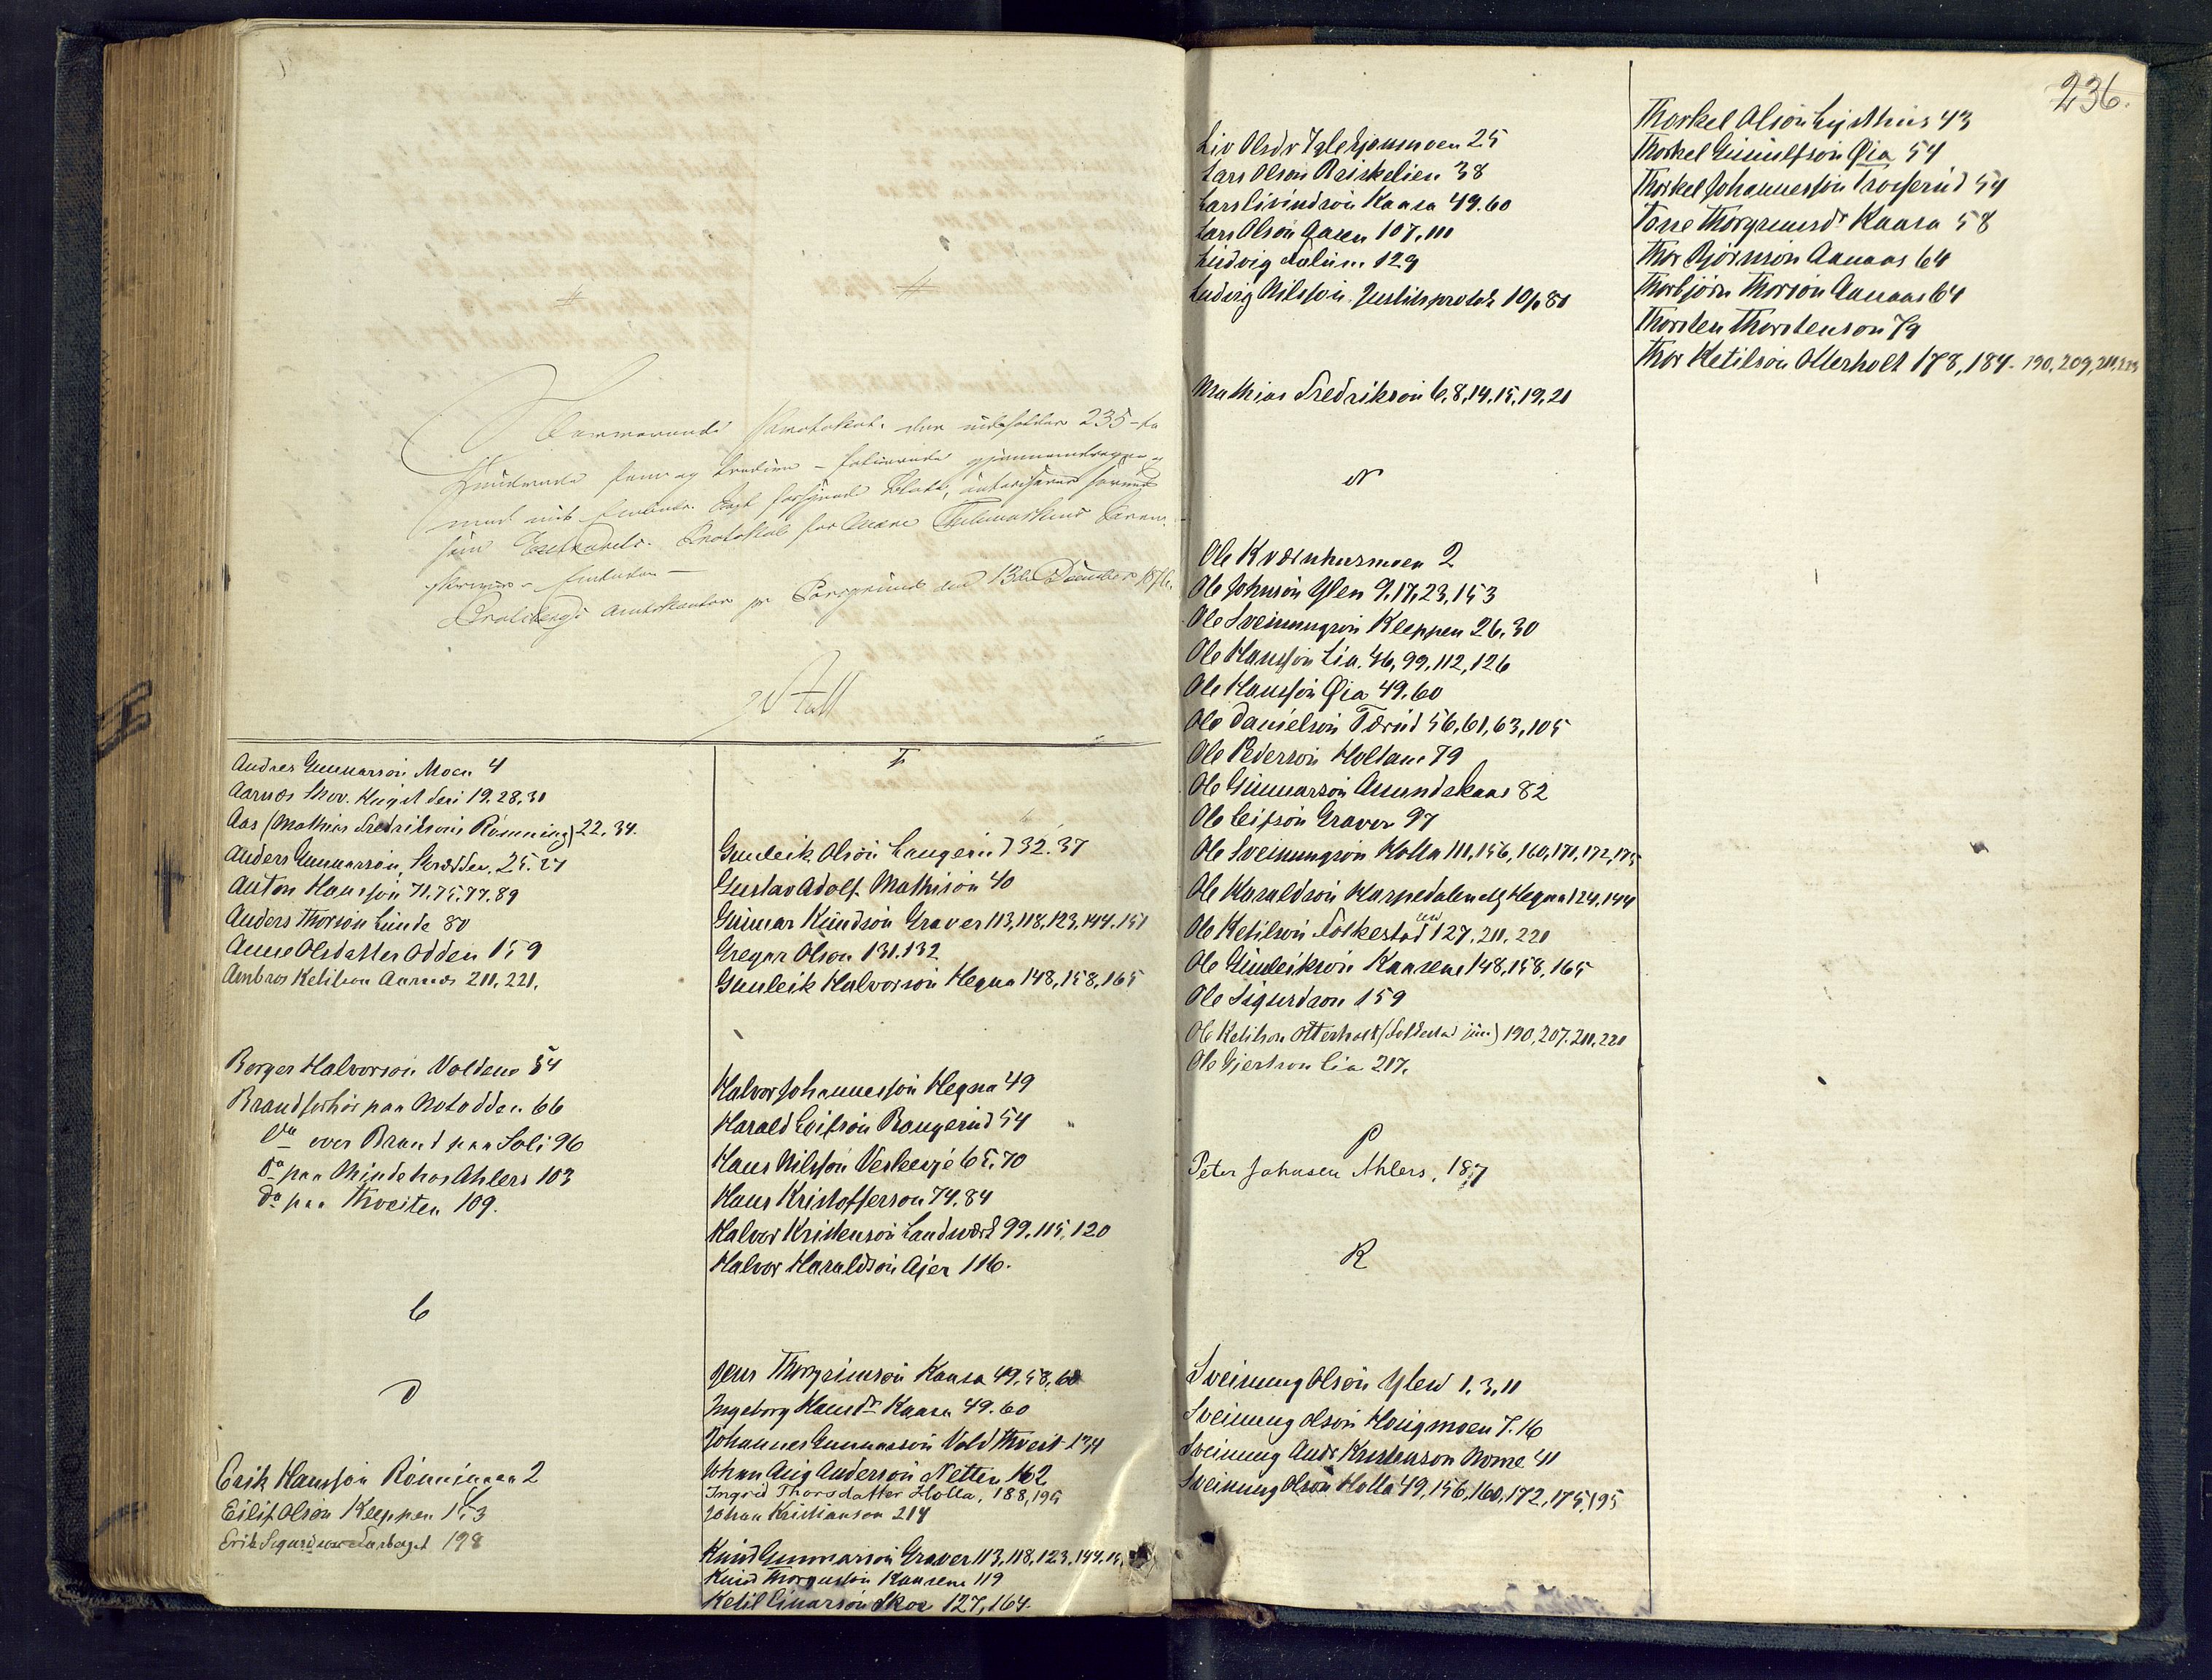 Nærværende Protokol, der indeholder 235 – to
Hundrede fem og tredive – folierede gjennemdragne og
med mit Embeds Segl forsynede Blade, autoriseres herved
som Extrarets-Protokol for Nedre Thelemarkens Soren-
skriver-Embede. –
Bratsbergs Amtskontor pr Porsgrund den 13de December 1876.
Andres Gunnarson Moen 4
Aarnæs 19. 28. 30
Aas (Mathias Fredriksons Rönning) 22. 34.
Anders Gunnarson, Skrædder, 25. 27
Anton Hansson 71. 75. 77. 89
Anders Thorson Linde 80
Anne Olsdatter Odden 159
Ambros Ketilson Aarnæs 211, 221.
Borger Halvorson Valdeno 54
Brandforhör paa Notodden 66
Do over Brand paa Soli 96
Do paa Minde hos Ahlers 103
do paa Tveiten 109.
C
D
Erik Hansson Rönningen 2
Eilif Olson Kleppen 153
Erik Sigurdson 198
F
Gunleik Olson Langerud 32. 37
Gustav Adolf Mathison 40
Gunnar Knudson Graver 113, 118, 123, 144. 151
Gregar Olson 131. 132
Gunleik Halvorson Hegna 148, 158, 165
Halvor Johannesson Hegna 49
Harald Leifson Baugerud 54
Hans Nilsson 65. 70
Hans Kristofferson 74. 84
Halvor Kristenson Landsværk 99. 115, 120
Halvor Haraldson Ajer 116.
Jens Thorgrimson Kaasa 49, 58, 60
Ingeborg Hansdr Kaasa 49. 60
Johannes Gunnarson Voldtveit 134
Johan Aug Anderson Netten 162
Ingrid Thorsdatter Holla, 188, 195
Johan Kristianson 214
Knud Gunnarson Graver 113, 118, 123. 144.
Knud Thorgusson Kaasene 119
Ketil Einarson Skoe 127, 164.
236.
Liv Olsdr 25
Lars Olson Reiskelien 38
Lars Eivindson Kaasa 49. 60
Lars Olson Aasen 107. 111
Ludvig Fulum 129
Ludvig Nilsson. Justitsprotok 10/9 80
Mathias Fredrikson 6. 8, 14. 15, 19, 21
N
Ole Kværnhusmoen 2
Ole Johnson Ylen 9, 17, 23, 153
Ole Sveinungson Kleppen 26, 30
Ole Hansson Lia. 46, 99, 112, 126
Ole Hansson Øia 49. 60
Ole Danielson Tærud 56. 61, 63, 105
Ole Pederson Holtane 79
Ole Gunnarson Amundskaas 82
Ole Leifson Graver 97
Ole Sveinungson Holla 111, 156, 160, 171, 172, 175
Ole Haraldson Harpedalen og Hegna 124, 144
Ole Ketilson Folkestad 127, 211, 220
Ole Gunleikson Kaasene 148, 158, 165
Ole Sigurdson 159
Ole Ketilson Otterholt (Folkestad jun) 190, 207. 211. 220
Ole Gjertson Lia 217.
P
Peter Johnsen Ahlers, 187
R
Sveinung Olson Ylen 1, 3, 11
Sveinung Olson Haugmoen 7. 16
Sveinung Andr Kristenson Rome 41
Sveinung Olson Holla 49, 156, 160, 172, 175, 195
Thorkel Olson 43
Thorkel Gunnulfson Øia 54
Thorkel Johannesson Trosserud 54
Torre Thorgrimsdr Kaasa 58
Thor Björnson Aanaas 64
Thorbjörn Thorson Aanaas 64
Thorsten Thorstenson 79
Thor Ketilson Otterholt 178, 184. 190, 209, 211,